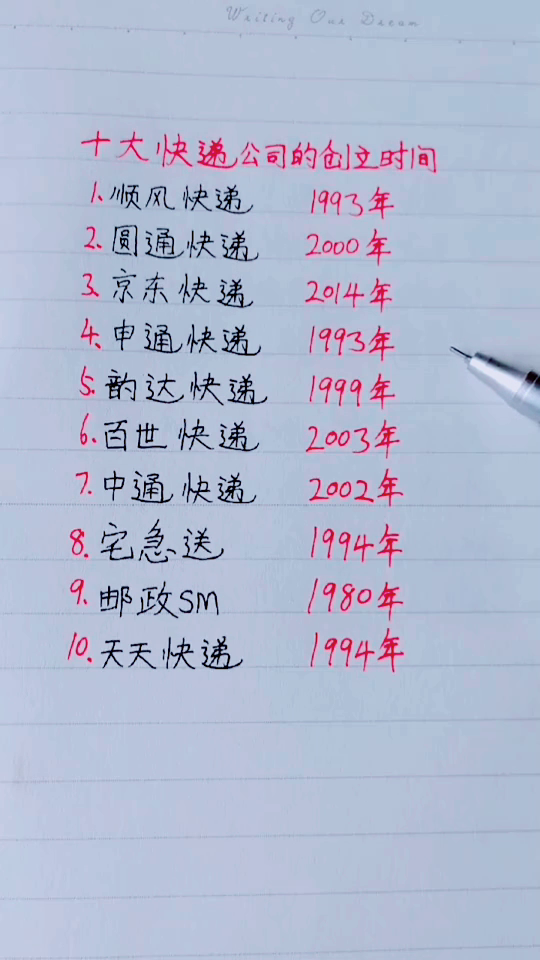 Writing Our Dream
十大快递公司的创立时间
1.顺风快递 1993年
2.圆通快递 2000年
3.京东快递 2014年
4.申通快递 1993年
5.韵达快递 1999年
6.百世快递 2003年
7.中通快递 2002年
8.宅急送 1994年
9.邮政SM 1980年
10.天天快递 1994年